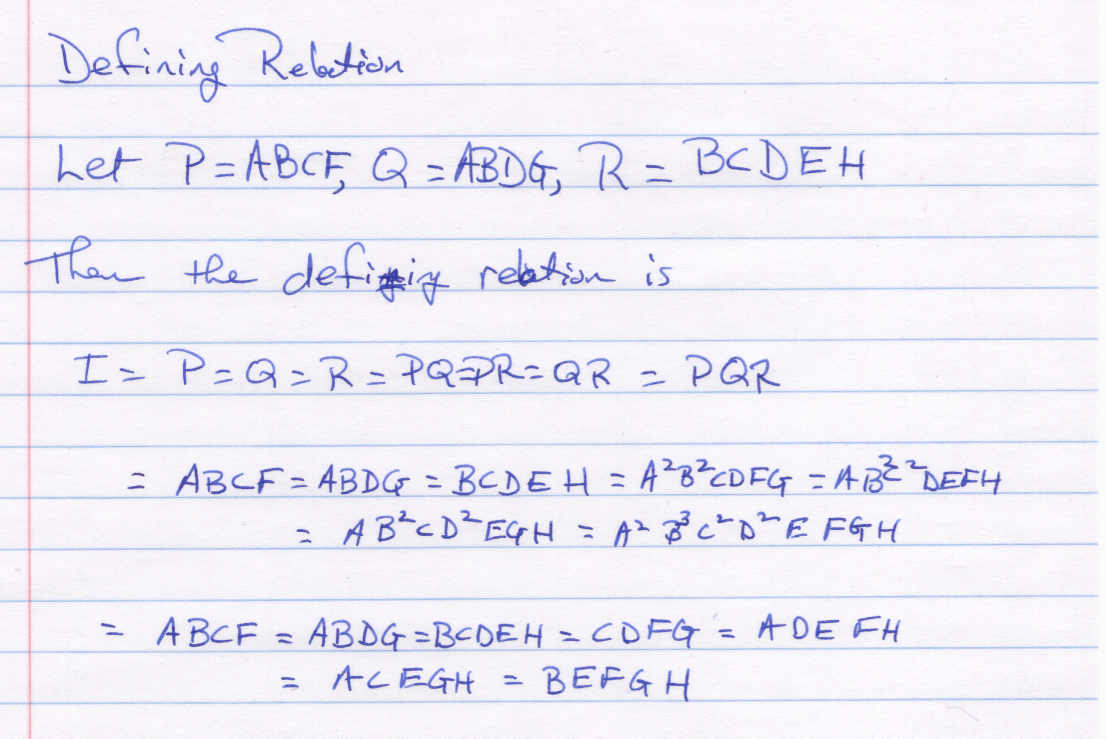 Defining Relation
Let P = ABCF, Q = ABDG, R = BCDEH
Then the defining relation is
I = P = Q = R = PQ = PR = QR = PQR
= ABCF = ABDG = BCDEH = A²B²CDFG = AB²C²DEFH
= AB²CD²EGH = A²B³C²D²EFGH
= ABCF = ABDG = BCDEH = CDFG = ADEFH
= ACEGH = BEFGH